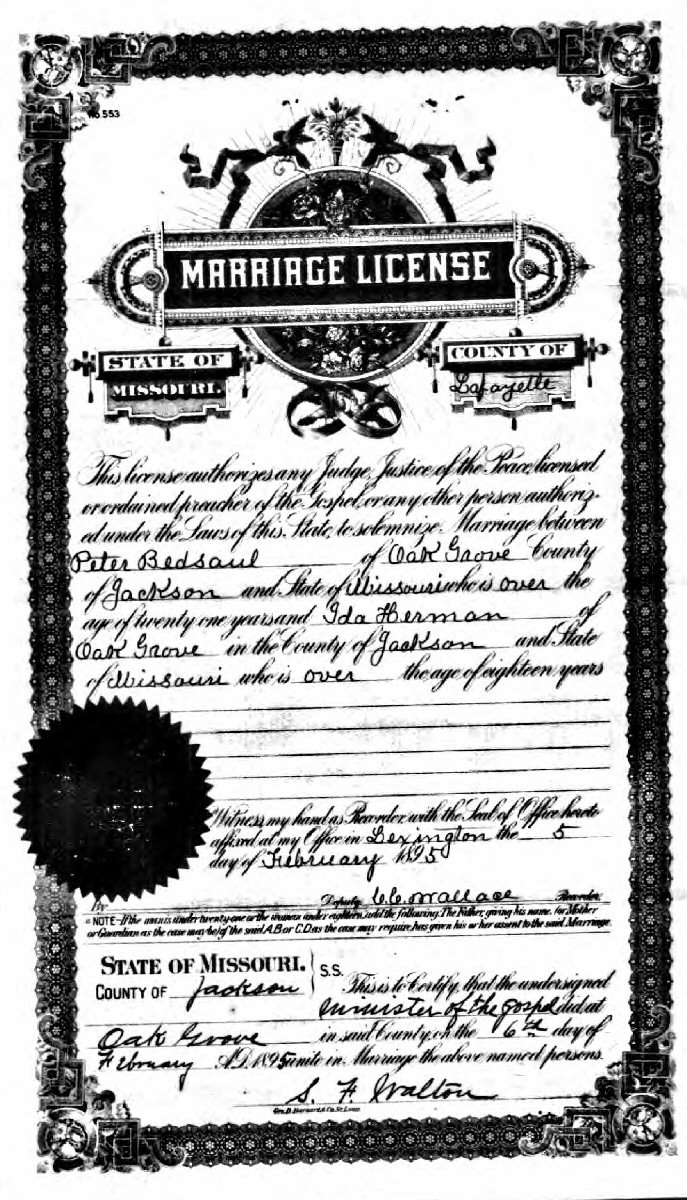 No 553
MARRIAGE LICENSE
STATE OF MISSOURI.
COUNTY OF Lafayette
This license authorizes any Judge, Justice of the Peace, licensed
or ordained preacher of the Gospel, or any other person authoriz-
ed under the Laws of this State, to solemnize Marriage between
Peter Bedsaul of Oak Grove County
of Jackson and State of Missouri who is over the
age of twenty one years and Ida Herman of
Oak Grove in the County of Jackson and State
of Missouri who is over the age of eighteen years
Witness my hand as Recorder, with the Seal of Office hereto
affixed at my Office in Lexington the 5
day of February 1895
By Deputy C C Wallace Recorder.
* NOTE-If the man is under twenty-one or the woman under eighteen, add the following. The Father, giving his name, (or Mother
or Guardian as the case may be) of the said A.B. or C.D. as the case may require, has given his or her assent to the said Marriage.
STATE OF MISSOURI. S.S.
COUNTY OF Jackson
This is to Certify, that the undersigned
minister of the gospel did at
Oak Grove in said County, on the 6th day of
February A.D. 1895 unite in Marriage the above named persons.
S. F. Walton
Geo. D. Barnard & Co. St. Louis